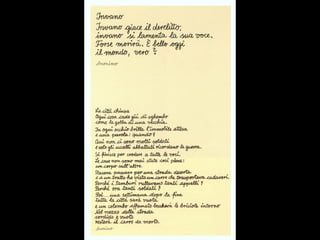 Invano
Invano giace il derelitto,
invano si lamenta la sua voce.
Forse morirà. È bello oggi
il mondo, vero?
Anonimo
La città chiusa
Ogni con cade giù di sghembo
come la gobba di una vecchia.
In ogni occhio brilla l'immobile attesa
e una parola: quando?
Qui non ci sono molti soldati
e solo gli uccelli abbattuti ricordano la guerra.
Si finisce per credere a tutte le voci.
Le case non sono mai state così piene:
un corpo sull'altro.
Stasera passavo per una strada deserta
e a un tratto ho visto un carro che trasportava cadaveri.
Perché i tamburi suonano tanti appelli?
Perché ora tanti soldati?
Poi... una settimana dopo la fine,
tutto la città sarà vuota
e un colombo affamato beccherà le briciole intorno
Nel mezzo della strada
sordido e vuoto
resterà il carro da morto.
Anonimo